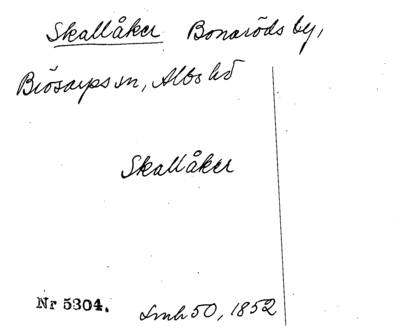 Skallåker Bonaröds by,
Brösarps sn, Albo hd
Skallåker
Nr 5304. Lmh 50, 1852